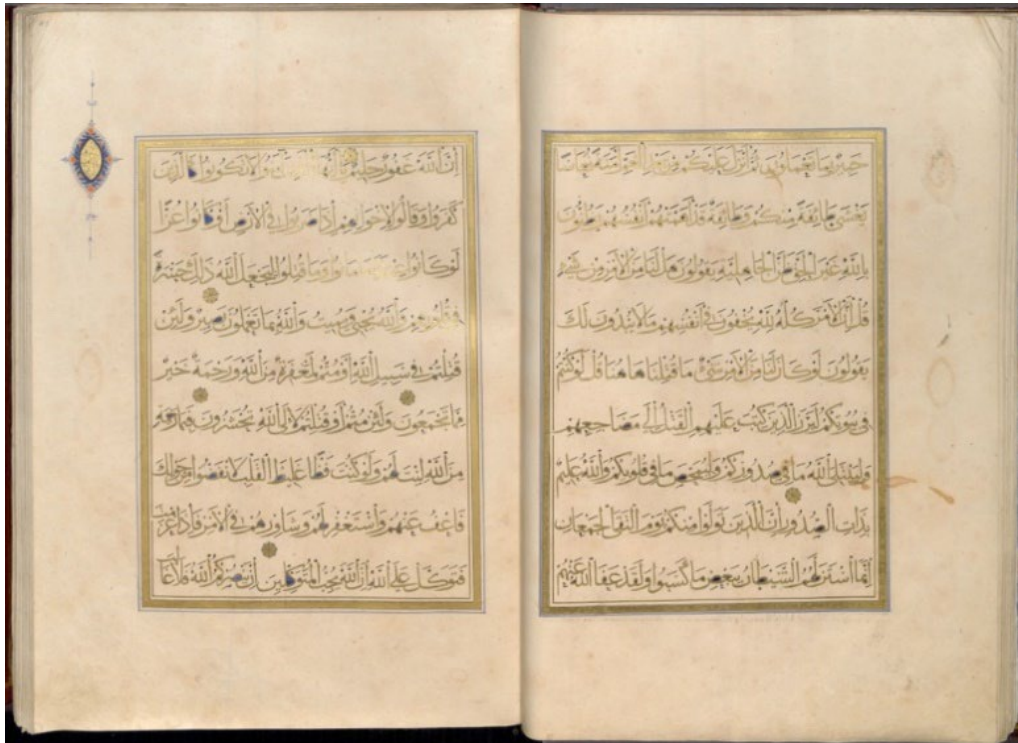 خبير بما تعملون ثم أنزل عليكم من بعد الغم أمنة نعاسا
يغشى طائفة منكم وطائفة قد أهمتهم أنفسهم يظنون
بالله غير الحق ظن الجاهلية يقولون هل لنا من الأمر من شيء
قل إن الأمر كله لله يخفون في أنفسهم ما لا يبدون لك
يقولون لو كان لنا من الأمر شيء ما قتلنا هاهنا قل لو كنتم
في بيوتكم لبرز الذين كتب عليهم القتل إلى مضاجعهم
وليبتلي الله ما في صدوركم وليمحص ما في قلوبكم والله عليم
بذات الصدور إن الذين تولوا منكم يوم التقى الجمعان
إنما استزلهم الشيطان ببعض ما كسبوا ولقد عفا الله عنهم
إن الله غفور حليم يا أيها الذين لا تكونوا كالذين
كفروا وقالوا لإخوانهم إذا ضربوا في الأرض أو كانوا غزا
لو كانوا عندنا ما ماتوا وما قتلوا ليجعل الله ذلك حسرة
في قلوبهم والله يحيي ويميت والله بما تعملون بصير ولئن
قتلتم في سبيل الله أو متم لمغفرة من الله ورحمة خير
مما يجمعون ولئن متم أو قتلتم لإلى الله تحشرون فبما رحمة
من الله لنت لهم ولو كنت فظا غليظ القلب لانفضوا من حولك
فاعف عنهم واستغفر لهم وشاورهم في الأمر فإذا عزمت
فتوكل على الله إن الله يحب المتوكلين إن ينصركم الله فلا غا